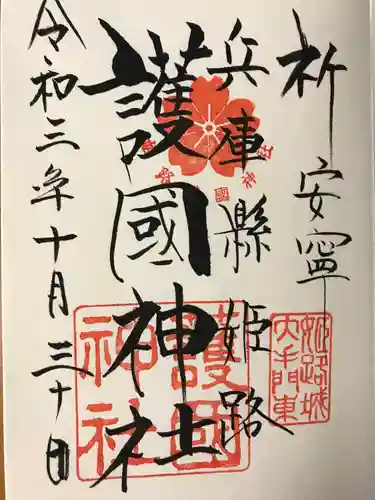 祈安寧
兵庫縣姫路
護國神社
令和三年十月三十日
護國神社
姫路城大手門東